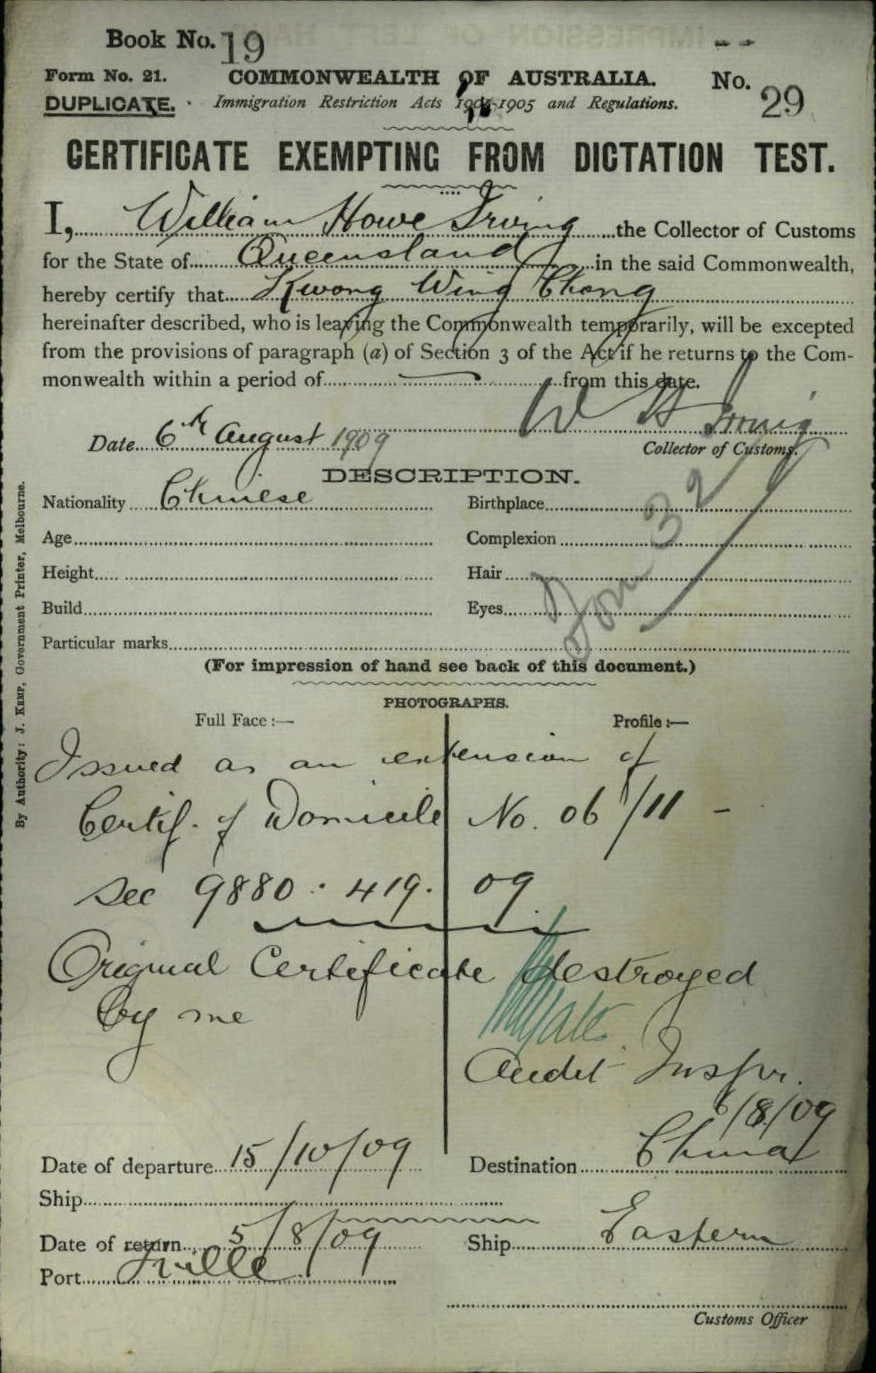 Book No. 19
Form No. 21. COMMONWEALTH OF AUSTRALIA. No. 29
DUPLICATE. Immigration Restriction Acts 1901-1905 and Regulations.
CERTIFICATE EXEMPTING FROM DICTATION TEST.
I, William Howe Irving the Collector of Customs
for the State of Queensland in the said Commonwealth,
hereby certify that Kwong Wing Chong
hereinafter described, who is leaving the Commonwealth temporarily, will be excepted
from the provisions of paragraph (a) of Section 3 of the Act if he returns to the Com-
monwealth within a period of from this date.
W H Irving
Date 6th August 1909
Collector of Customs.
DESCRIPTION.
Nationality Chinese Birthplace
Age Complexion
Height Hair
Build Eyes
Dom 32
Particular marks
(For impression of hand see back of this document.)
PHOTOGRAPHS.
Full Face:— Profile:—
Issued as an extension of
Certif. of Domicile No. 06/11 -
See 9880. 419. 09
Original Certificate destroyed
by me
Audit Inspr.
6/8/09
Date of departure 15/10/09 Destination China
Ship
Date of return 5/8/09 Ship Eastern
Port Tville
Customs Officer
By Authority: J. Kemp, Government Printer, Melbourne.